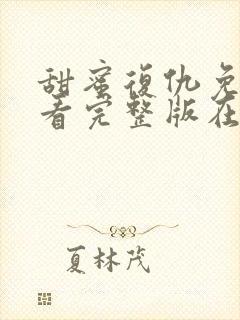 甜蜜復仇免
看完整版在
夏林茂